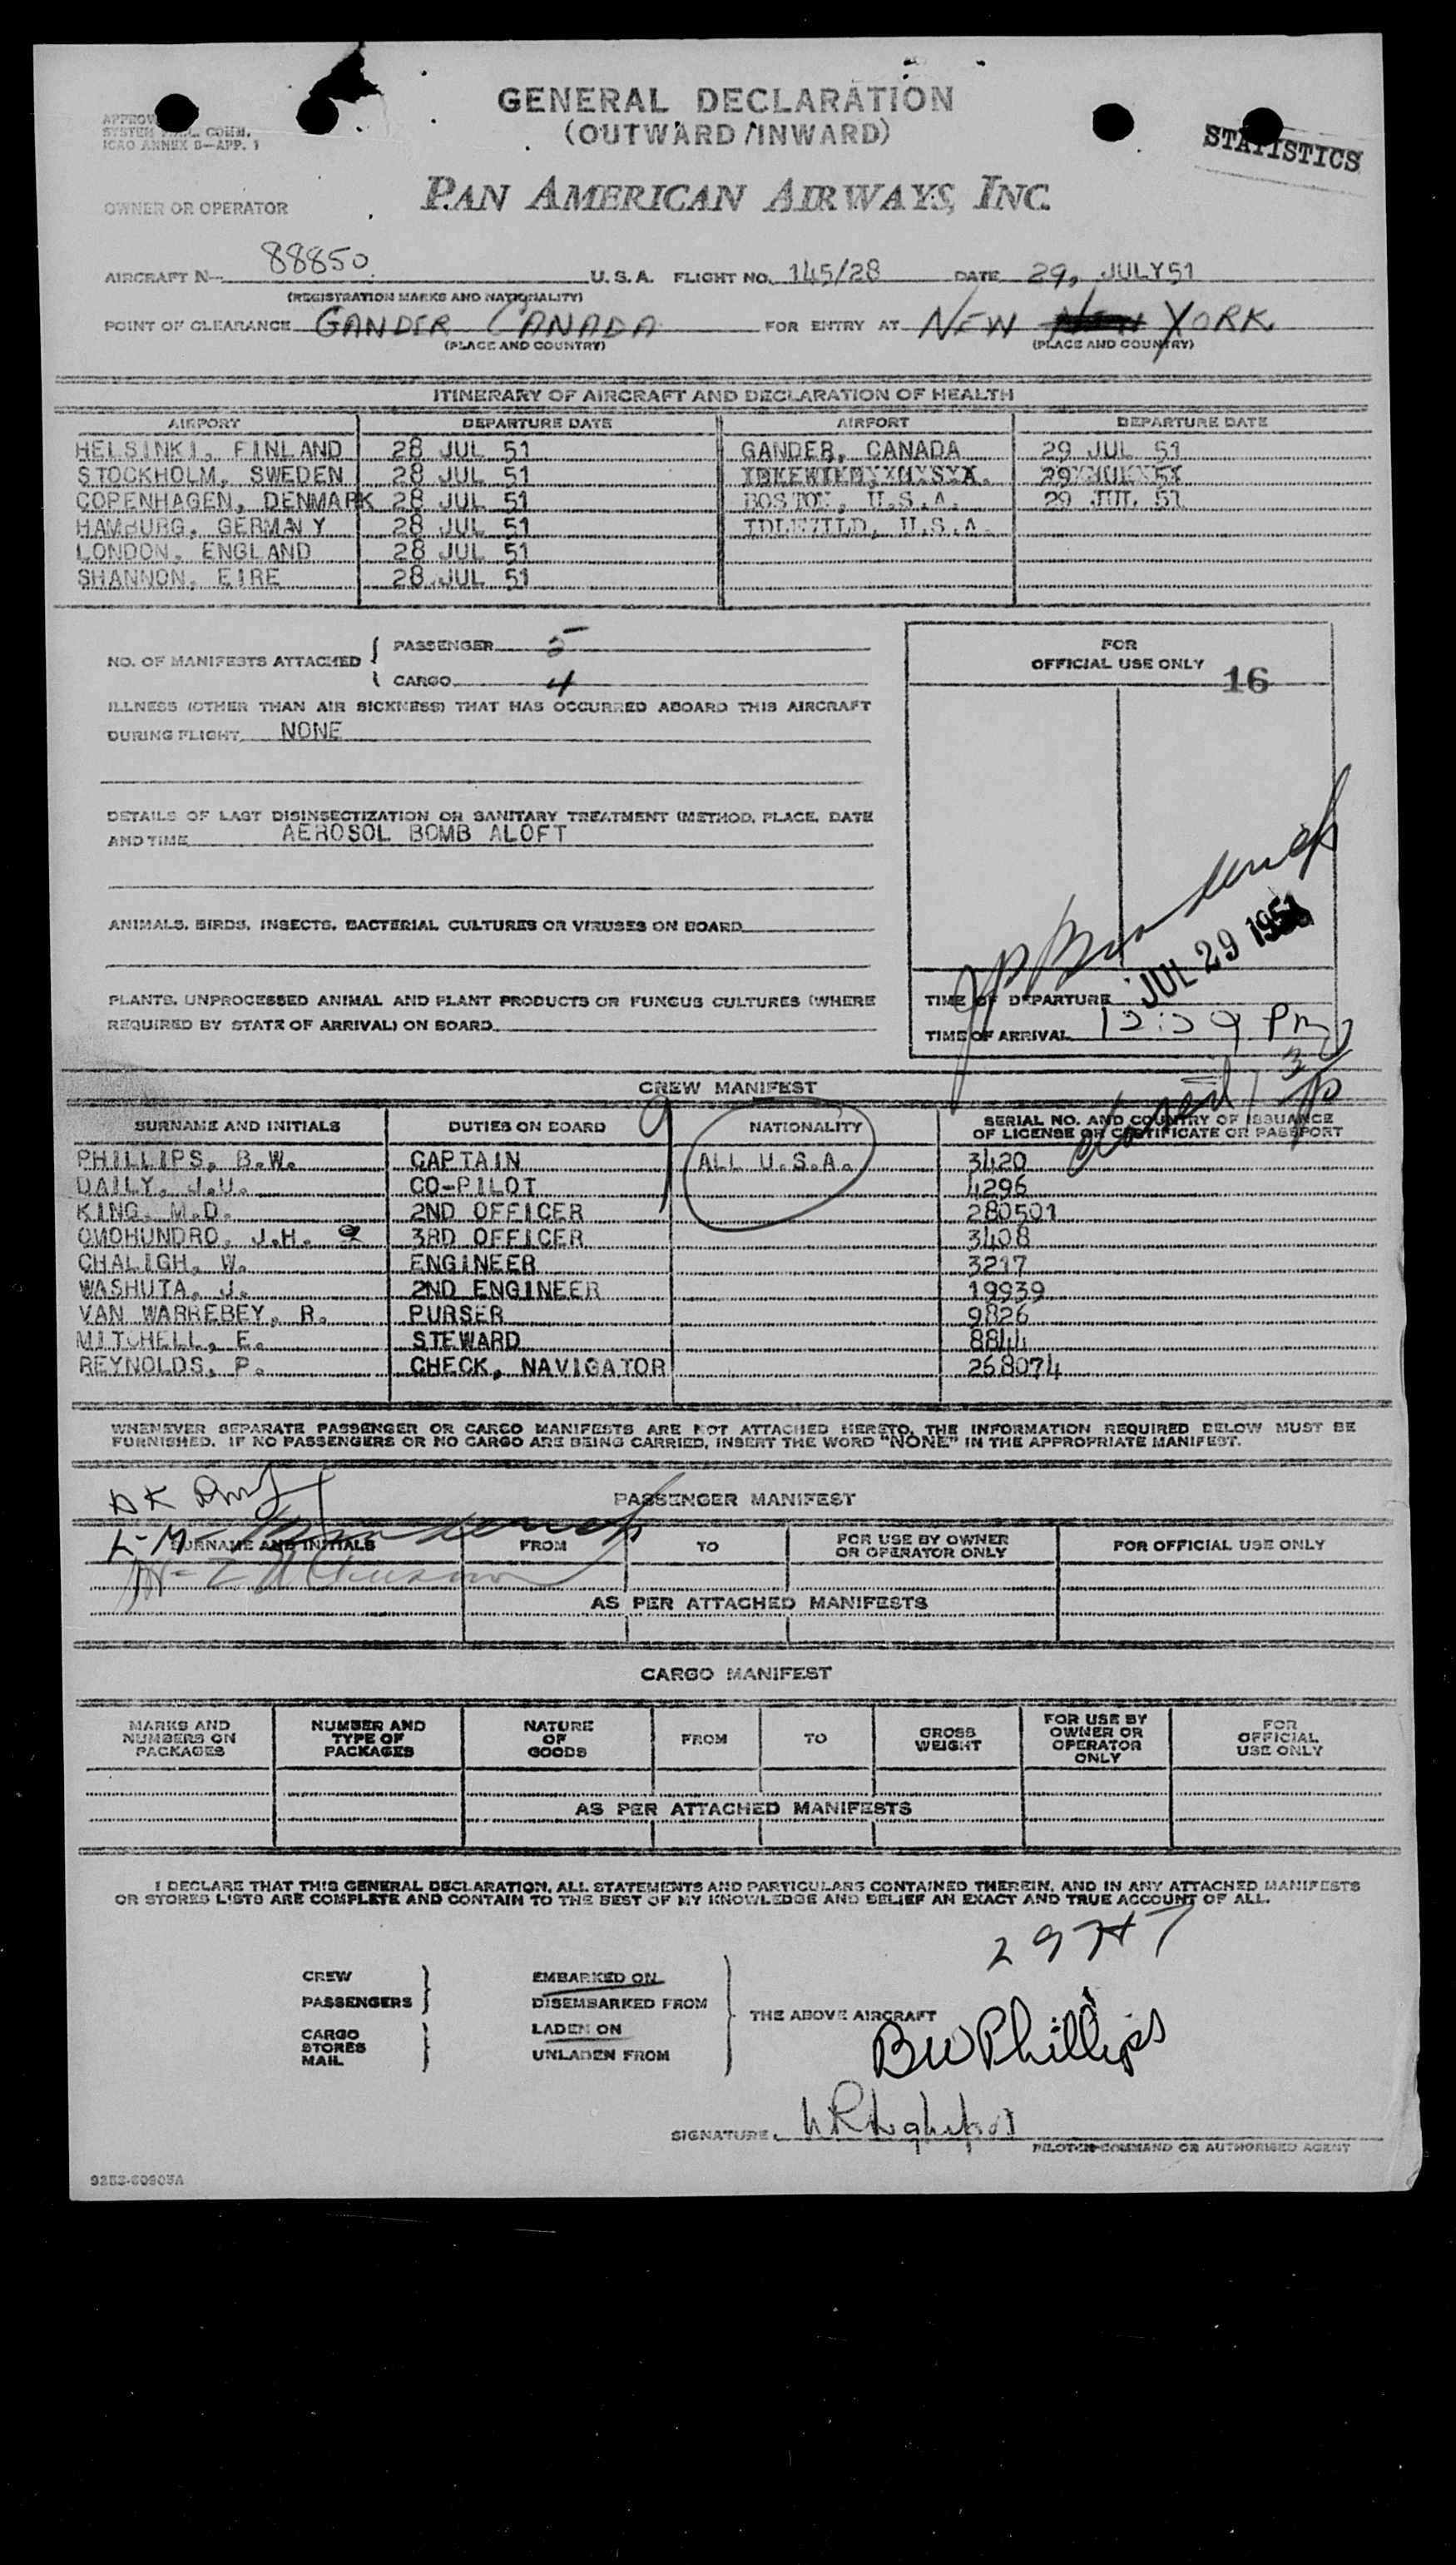 GENERAL DECLARATION
(OUTWARD/INWARD)
SYSTEM COMM.
ICAO ANNEX 9—APP. 1
STATISTICS
OWNER OR OPERATOR PAN AMERICAN AIRWAYS, INC.
AIRCRAFT N— 88850 U.S.A. FLIGHT NO. 145/28 DATE 29, JULY 51
(REGISTRATION MARKS AND NATIONALITY)
POINT OF CLEARANCE GANDER CANADA FOR ENTRY AT NEW YORK.
(PLACE AND COUNTRY) (PLACE AND COUNTRY)
ITINERARY OF AIRCRAFT AND DECLARATION OF HEALTH
AIRPORT DEPARTURE DATE AIRPORT DEPARTURE DATE
HELSINKI, FINLAND 28 JUL 51 GANDER, CANADA 29 JUL 51
STOCKHOLM, SWEDEN 28 JUL 51
COPENHAGEN, DENMARK 28 JUL 51 BOSTON, U.S.A. 29 JUL 51
HAMBURG, GERMANY 28 JUL 51 IDLEWILD, U.S.A.
LONDON, ENGLAND 28 JUL 51
SHANNON, EIRE 28 JUL 51
NO. OF MANIFESTS ATTACHED { PASSENGER 5
CARGO 4
FOR
OFFICIAL USE ONLY 16
ILLNESS (OTHER THAN AIR SICKNESS) THAT HAS OCCURRED ABOARD THIS AIRCRAFT
DURING FLIGHT NONE
DETAILS OF LAST DISINSECTIZATION OR SANITARY TREATMENT (METHOD, PLACE, DATE
AND TIME AEROSOL BOMB ALOFT
ANIMALS, BIRDS, INSECTS, BACTERIAL CULTURES OR VIRUSES ON BOARD
JUL 29 1951
PLANTS, UNPROCESSED ANIMAL AND PLANT PRODUCTS OR FUNGUS CULTURES (WHERE
REQUIRED BY STATE OF ARRIVAL) ON BOARD
TIME OF DEPARTURE
TIME OF ARRIVAL 12:29 PM
CREW MANIFEST
9
SURNAME AND INITIALS DUTIES ON BOARD NATIONALITY SERIAL NO. AND COUNTRY OF ISSUANCE
OF LICENSE OR CERTIFICATE OR PASSPORT
PHILLIPS, B.W. CAPTAIN ALL U.S.A. 3420
DAILY, J.U. CO-PILOT 4296
KING, M.D. 2ND OFFICER 280501
OMOHUNDRO, J.H. 3RD OFFICER 3408
CHALIGH, W. ENGINEER 3217
WASHUTA, J. 2ND ENGINEER 19939
VAN WARREBEY, R. PURSER 9826
MITCHELL, E. STEWARD 8844
REYNOLDS, P. CHECK, NAVIGATOR 268074
WHENEVER SEPARATE PASSENGER OR CARGO MANIFESTS ARE NOT ATTACHED HERETO, THE INFORMATION REQUIRED BELOW MUST BE
FURNISHED. IF NO PASSENGERS OR NO CARGO ARE BEING CARRIED, INSERT THE WORD "NONE" IN THE APPROPRIATE MANIFEST.
PASSENGER MANIFEST
SURNAME AND INITIALS FROM TO FOR USE BY OWNER
OR OPERATOR ONLY FOR OFFICIAL USE ONLY
AS PER ATTACHED MANIFESTS
CARGO MANIFEST
MARKS AND
NUMBERS ON
PACKAGES NUMBER AND
TYPE OF
PACKAGES NATURE
OF
GOODS FROM TO GROSS
WEIGHT FOR USE BY
OWNER OR
OPERATOR
ONLY FOR
OFFICIAL
USE ONLY
AS PER ATTACHED MANIFESTS
I DECLARE THAT THIS GENERAL DECLARATION, ALL STATEMENTS AND PARTICULARS CONTAINED THEREIN, AND IN ANY ATTACHED MANIFESTS
OR STORES LISTS ARE COMPLETE AND CONTAIN TO THE BEST OF MY KNOWLEDGE AND BELIEF AN EXACT AND TRUE ACCOUNT OF ALL.
CREW
PASSENGERS } EMBARKED ON
DISEMBARKED FROM
CARGO
STORES
MAIL } LADEN ON
UNLADEN FROM } THE ABOVE AIRCRAFT
BW Phillips
SIGNATURE
PILOT-IN-COMMAND OR AUTHORISED AGENT